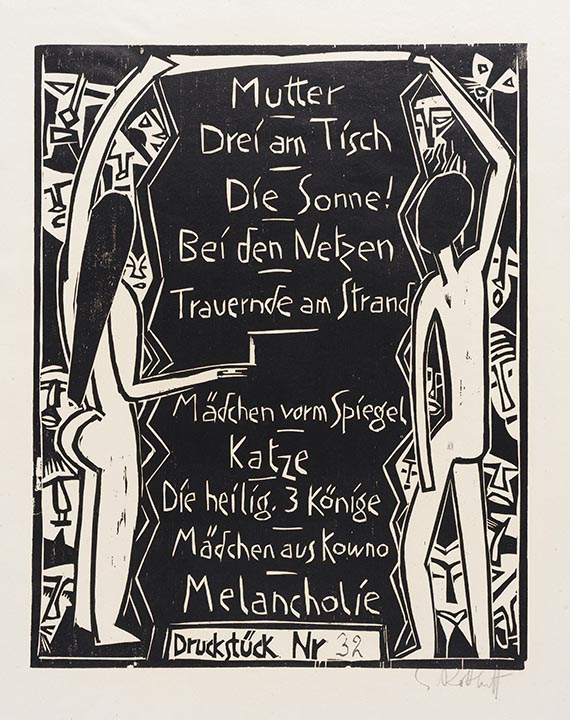 Mutter
Drei am Tisch
Die Sonne!
Bei den Netzen
Trauernde am Strand
Mädchen vorm Spiegel
Katze
Die heilig. 3 Könige
Mädchen aus Kowno
Melancholie
Druckstück Nr 32